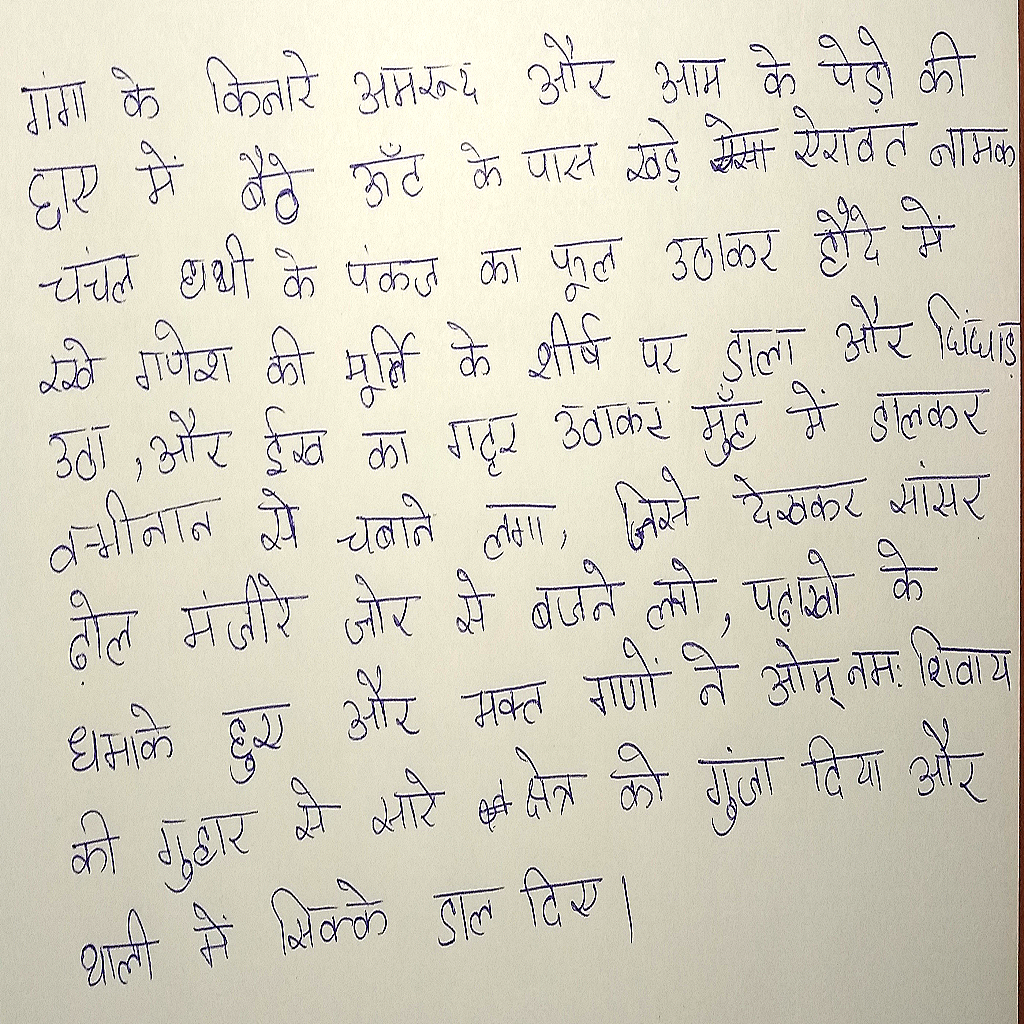 गंगा के किनारे अमरूद और आम के पेड़ो की
छाए में बैठे ऊँट के पास खड़े ऐरावत नामक
चंचल हाथी के पंकज का फूल उठाकर हौदे में
रखे गणेश की मूर्ति के शीर्ष पर डाला और चिंघाड़
उठा , और ईख का गट्ठर उठाकर मुँह में डालकर
से चबाने लगा, जिसे देखकर सांसर
ढ़ोल मंजीरे जोर से बजने लगे, पढ़ाखो के
धमाके हुए और भक्त गणों ने ओम् नमः शिवाय
की गुहार से सारे क्षेत्र को गुंजा दिया और
थाली में सिक्के डाल दिए।